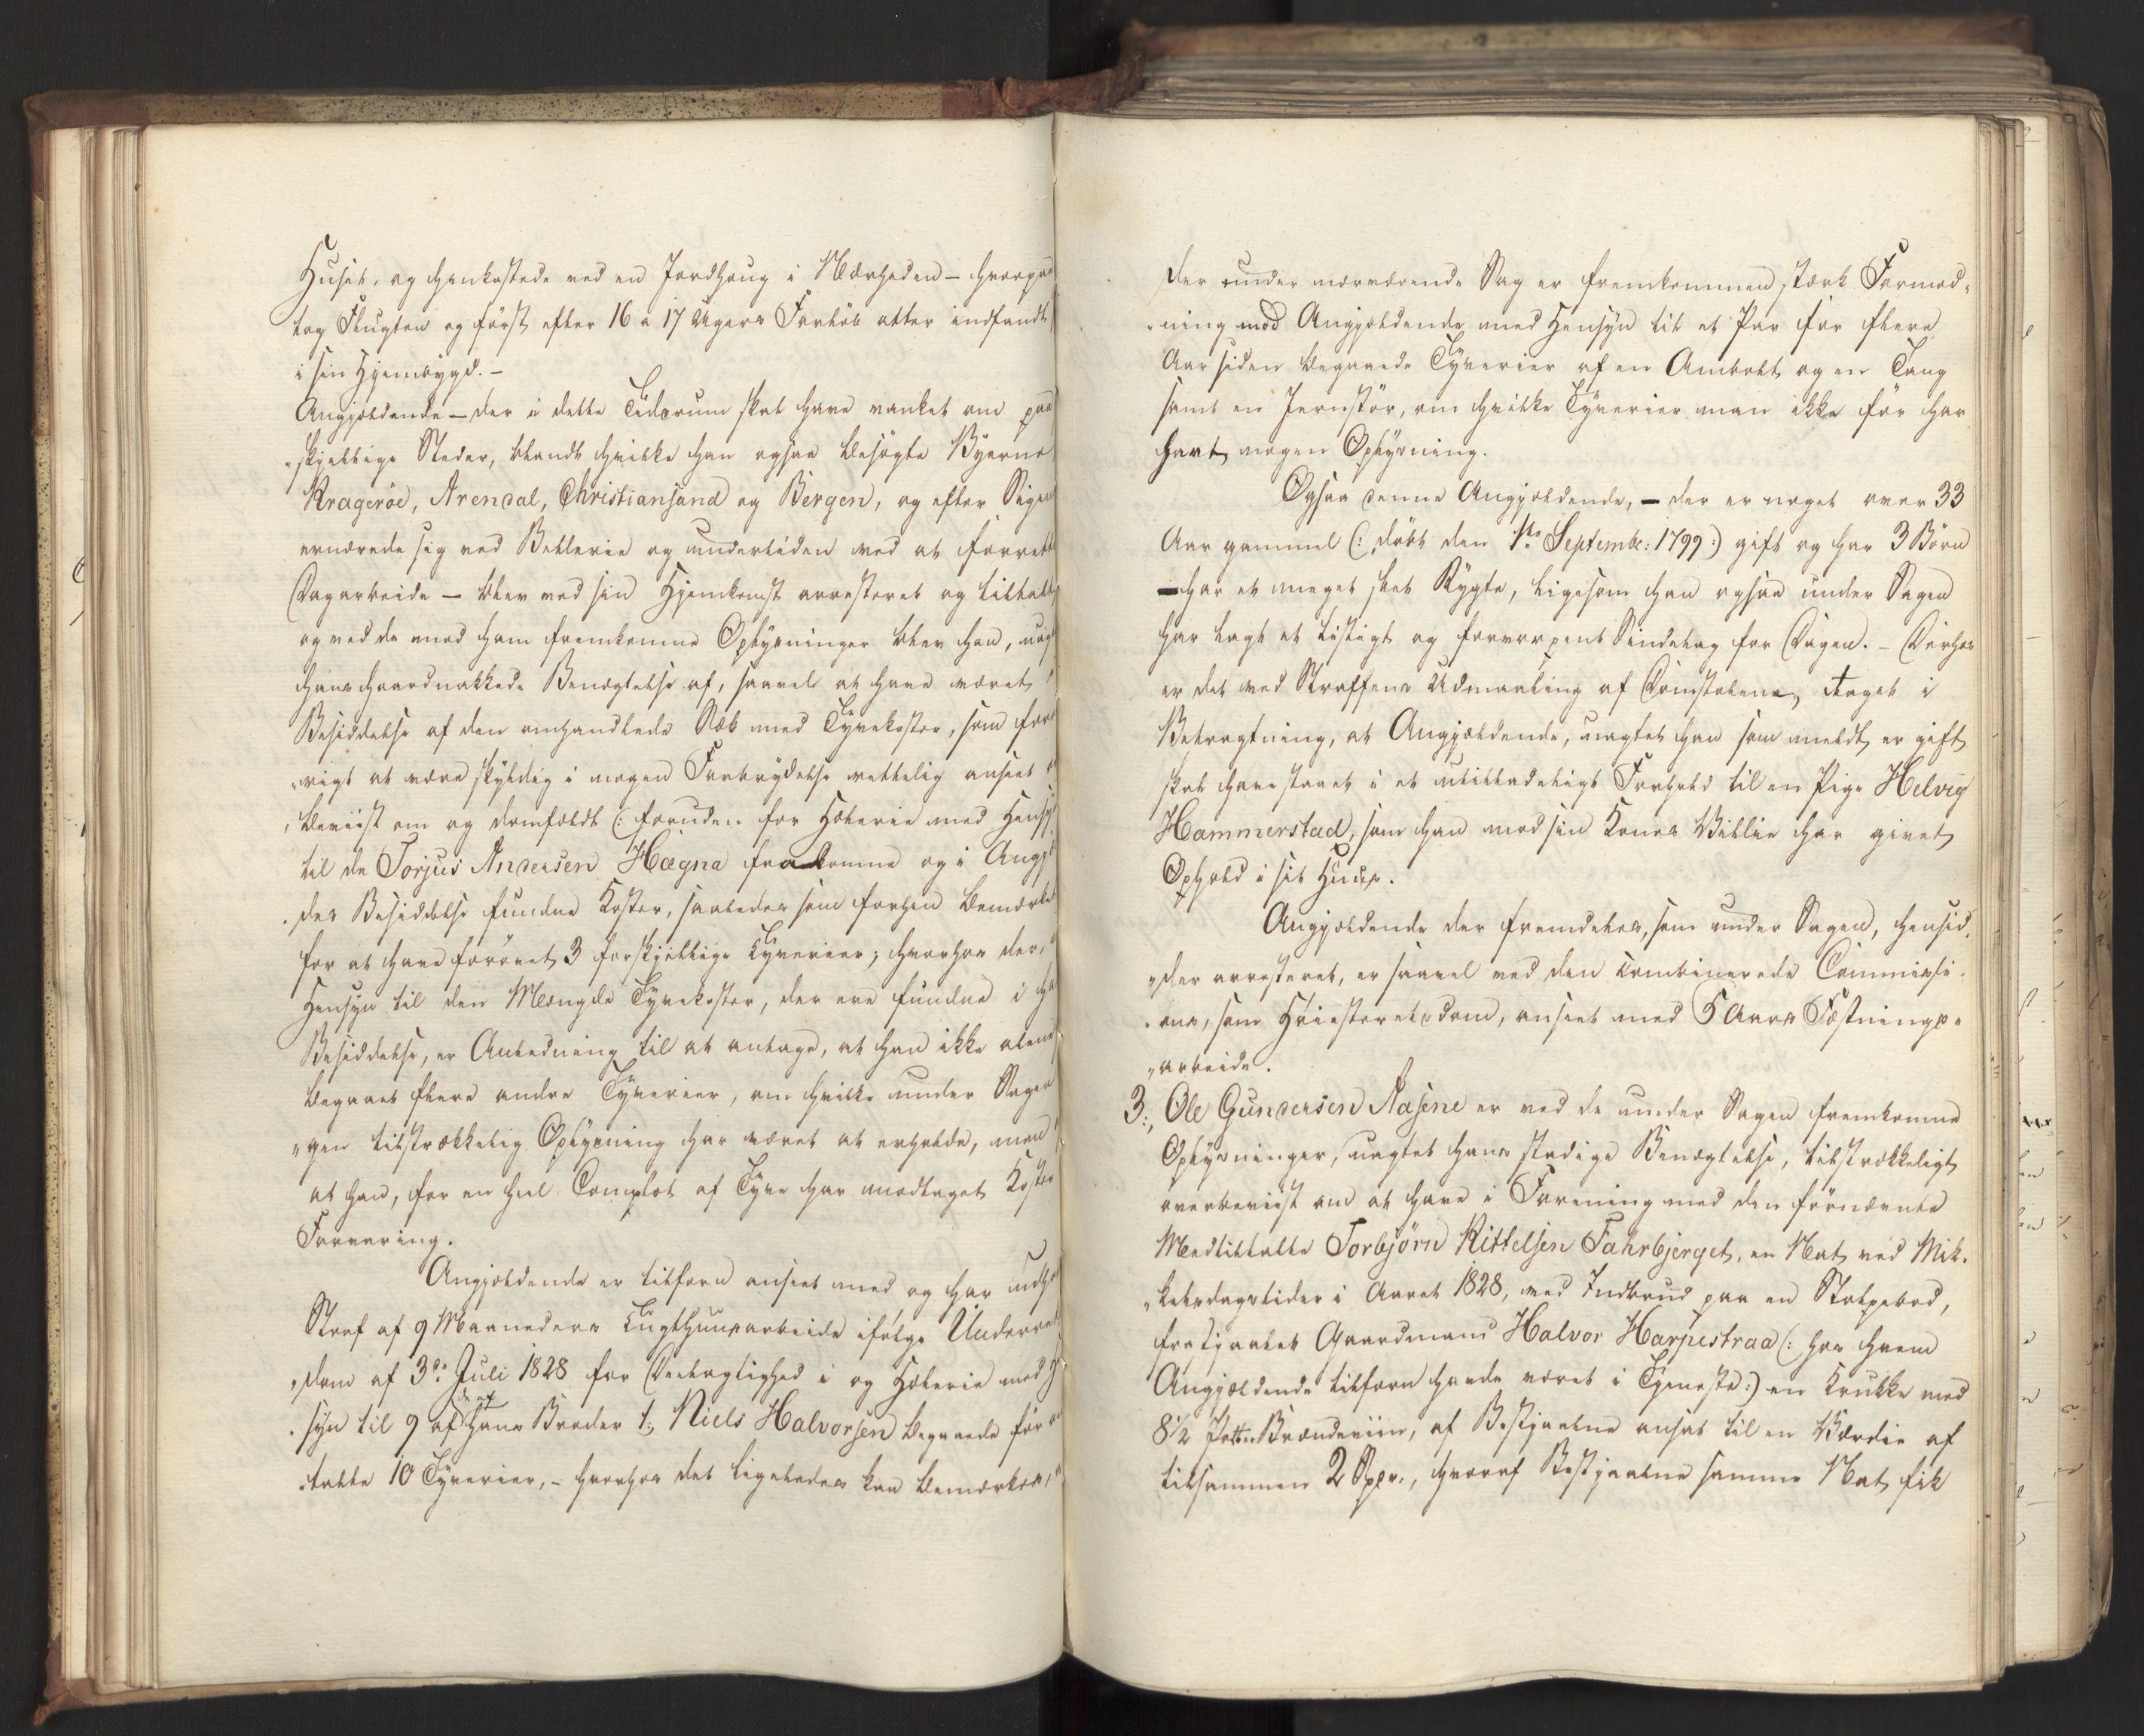 Huset, og henkastede ved en Jordhoug i Nærheden – hvorpaa
tog Flugten og først efter 16 a 17 Ugers Forløb atter indfandt
i sin Hjembygd. –
Angjældende – der i dette Tidsrum skal have vanket om paa
„skjellige Steder, blandt hvilke han ogsaa besøgte Byerne
Kragerøe, Arendal, Christiansand og Bergen, og efter Sigende
ernærede sig ved Betlerie og undertiden ved at forrette
Dagarbeide – blev ved sin Hjemkomst arresteret og tiltalt
og ved de mod ham fremkomne Oplysninger blev han, uagtet
hans haardnakkede Benægtelse af, saavel at have været i
Besiddelse af den omhandlede Sæk med Tyvekoster, som for
„vigt at være skyldig i nogen Forbrydelse rettelig anseet
„beviist om og domfældt (: foruden for Hæleri med Hensyn
til de Torjus Andersen Hægna frakomne og i Angjæl
„des Besiddelse fundne Koster, saaledes som forhen bemærket
for at have forøvet 3 forskjellige Tyverier; hvorhos der, i
Hensyn til den Mængde Tyvekoster, der ere fundne i ha
Besiddelse, er Anledning til at antage, at han ikke alene
begaaet flere andre Tyverier, om hvilke under Sagen
„gen tilstrækkelig Oplysning har været at erholde, men
at han, for en heel Complot af Tyve har modtaget Koster
Forvaring.
Angjældende er tilforn anseet med og har udh
Straf af 9 Maaneders Tugthuusarbeide ifølge Underret
„dom af 3de Juli 1828 for Deelagtighed i og Hæleri med H
„syn til 9 af de af hans Broder 1., Niels Halvorsen begaaede før
„talte 10 Tyverier, – hvorhos det ligeledes kan bemærkes, "
der under nærværende Sag er fremkommen stærk Formod„
„ning mod Angjældende med Hensyn til et Par for flere
Aar siden begaaede Tyverier af en Ambolt og en Tang
samt en Jernstör, om hvilke Tyverier man ikke før har
havt nogen Oplysning.
Ogsaa denne Angjældende, – der er noget over 33
Aar gammel (: døbt den 1ste Septembr: 1799 :) gift og har 3 Børn
– har et meget slet Rygte, ligesom han ogsaa under Sagen
har lagt et listigt og forvorpent Sindelag for Dagen. – Derhos
er det ved Straffens Udmaaling af Domstolene, taget i
Betragtning, at Angjældende, uagtet han som meldt er gift
skal have staaet i et utilladeligt Forhold til en Pige Helvig
Hammerstad, som han mod sin Kones Villie har givet
Ophold i sit Huus.
Angjældende der fremdeles, som under Sagen, hensid„
„der arresteret, er saavel ved den combinerede Commissi„
„ons, som Høiesteretsdom, anseet med 5 Aars Fæstnings„
„arbeide.
3., Ole Gundersen Aasene er ved de under Sagen fremkomne
Oplysninger, uagtet hans stadige Benægtelse, tilstrækkeligt
overbeviist om at have i Forening med den førnævnte
Medtiltalte Torbjørn Kittelsen Fahrbjerget, en Nat ved Mik„
„kelsdagstider i Aaret 1828, ved Indbrud paa en Stolpebod,
frastjaalet Gaardmand Halvor Harpestraa (: hos hvem
Angjældende tilforn havde været i Tjeneste :) en Krukke med
8½ Potter Brændeviin, af Bestjaalne ansat til en Værdie af
tilsammen 2 Spd., hvoraf Bestjaalne samme Nat fik